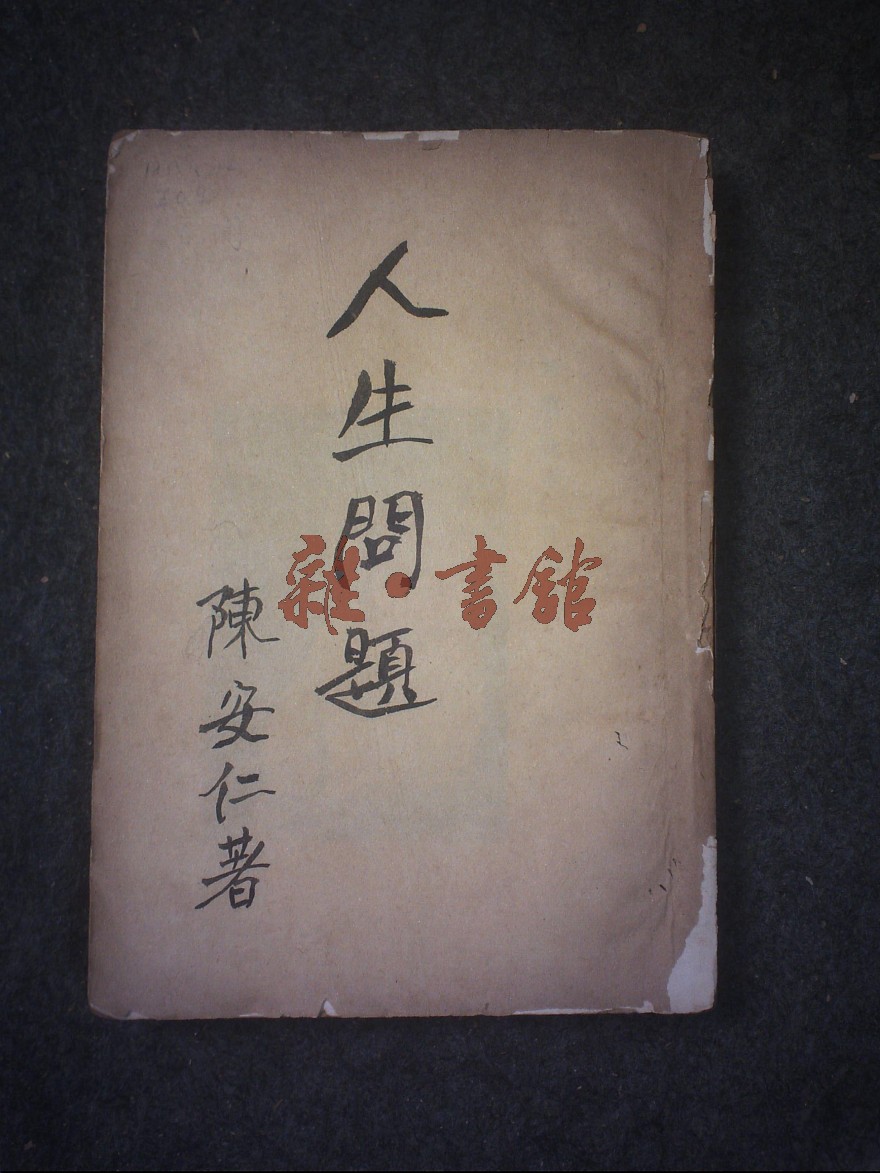 人生問題
陳安仁著
雜·書館